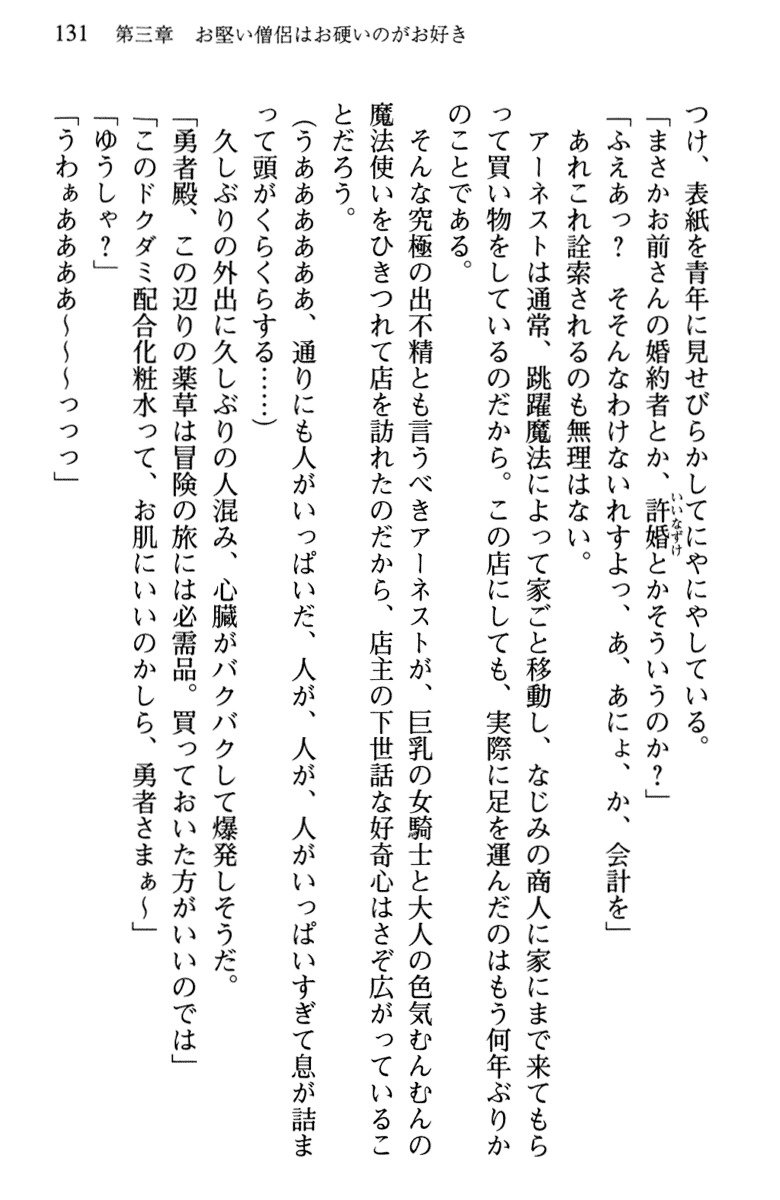 131　第三章　お堅い僧侶はお硬いのがお好き
つけ、表紙を青年に見せびらかしてにやにやしている。
「まさかお前さんの婚約者とか、許婚とかそういうのか？」
いいなずけ
「ふえあっ？　そそんなわけないれすよっ、あ、あにょ、か、会計を」
あれこれ詮索されるのも無理はない。
　アーネストは通常、跳躍魔法によって家ごと移動し、なじみの商人に家にまで来てもら
って買い物をしているのだから。この店にしても、実際に足を運んだのはもう何年ぶりか
のことである。
　そんな究極の出不精とも言うべきアーネストが、巨乳の女騎士と大人の色気むんむんの
魔法使いをひきつれて店を訪れたのだから、店主の下世話な好奇心はさぞ広がっているこ
とだろう。
（うああああああ、通りにも人がいっぱいだ、人が、人が、人がいっぱいすぎて息が詰ま
って頭がくらくらする……）
　久しぶりの外出に久しぶりの人混み、心臓がバクバクして爆発しそうだ。
「勇者殿、この辺りの薬草は冒険の旅には必需品。買っておいた方がいいのでは」
「このドクダミ配合化粧水って、お肌にいいのかしら、勇者さまぁ～」
「ゆうしゃ？」
「うわぁああああ～～～っっっ」